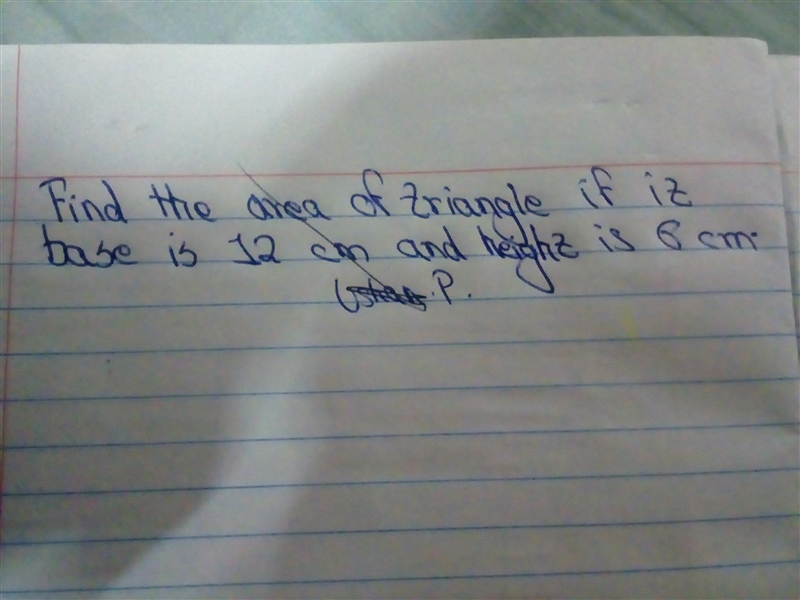 Find the area of triangle if it
base is 12 cm and height is 6 cm.
P.